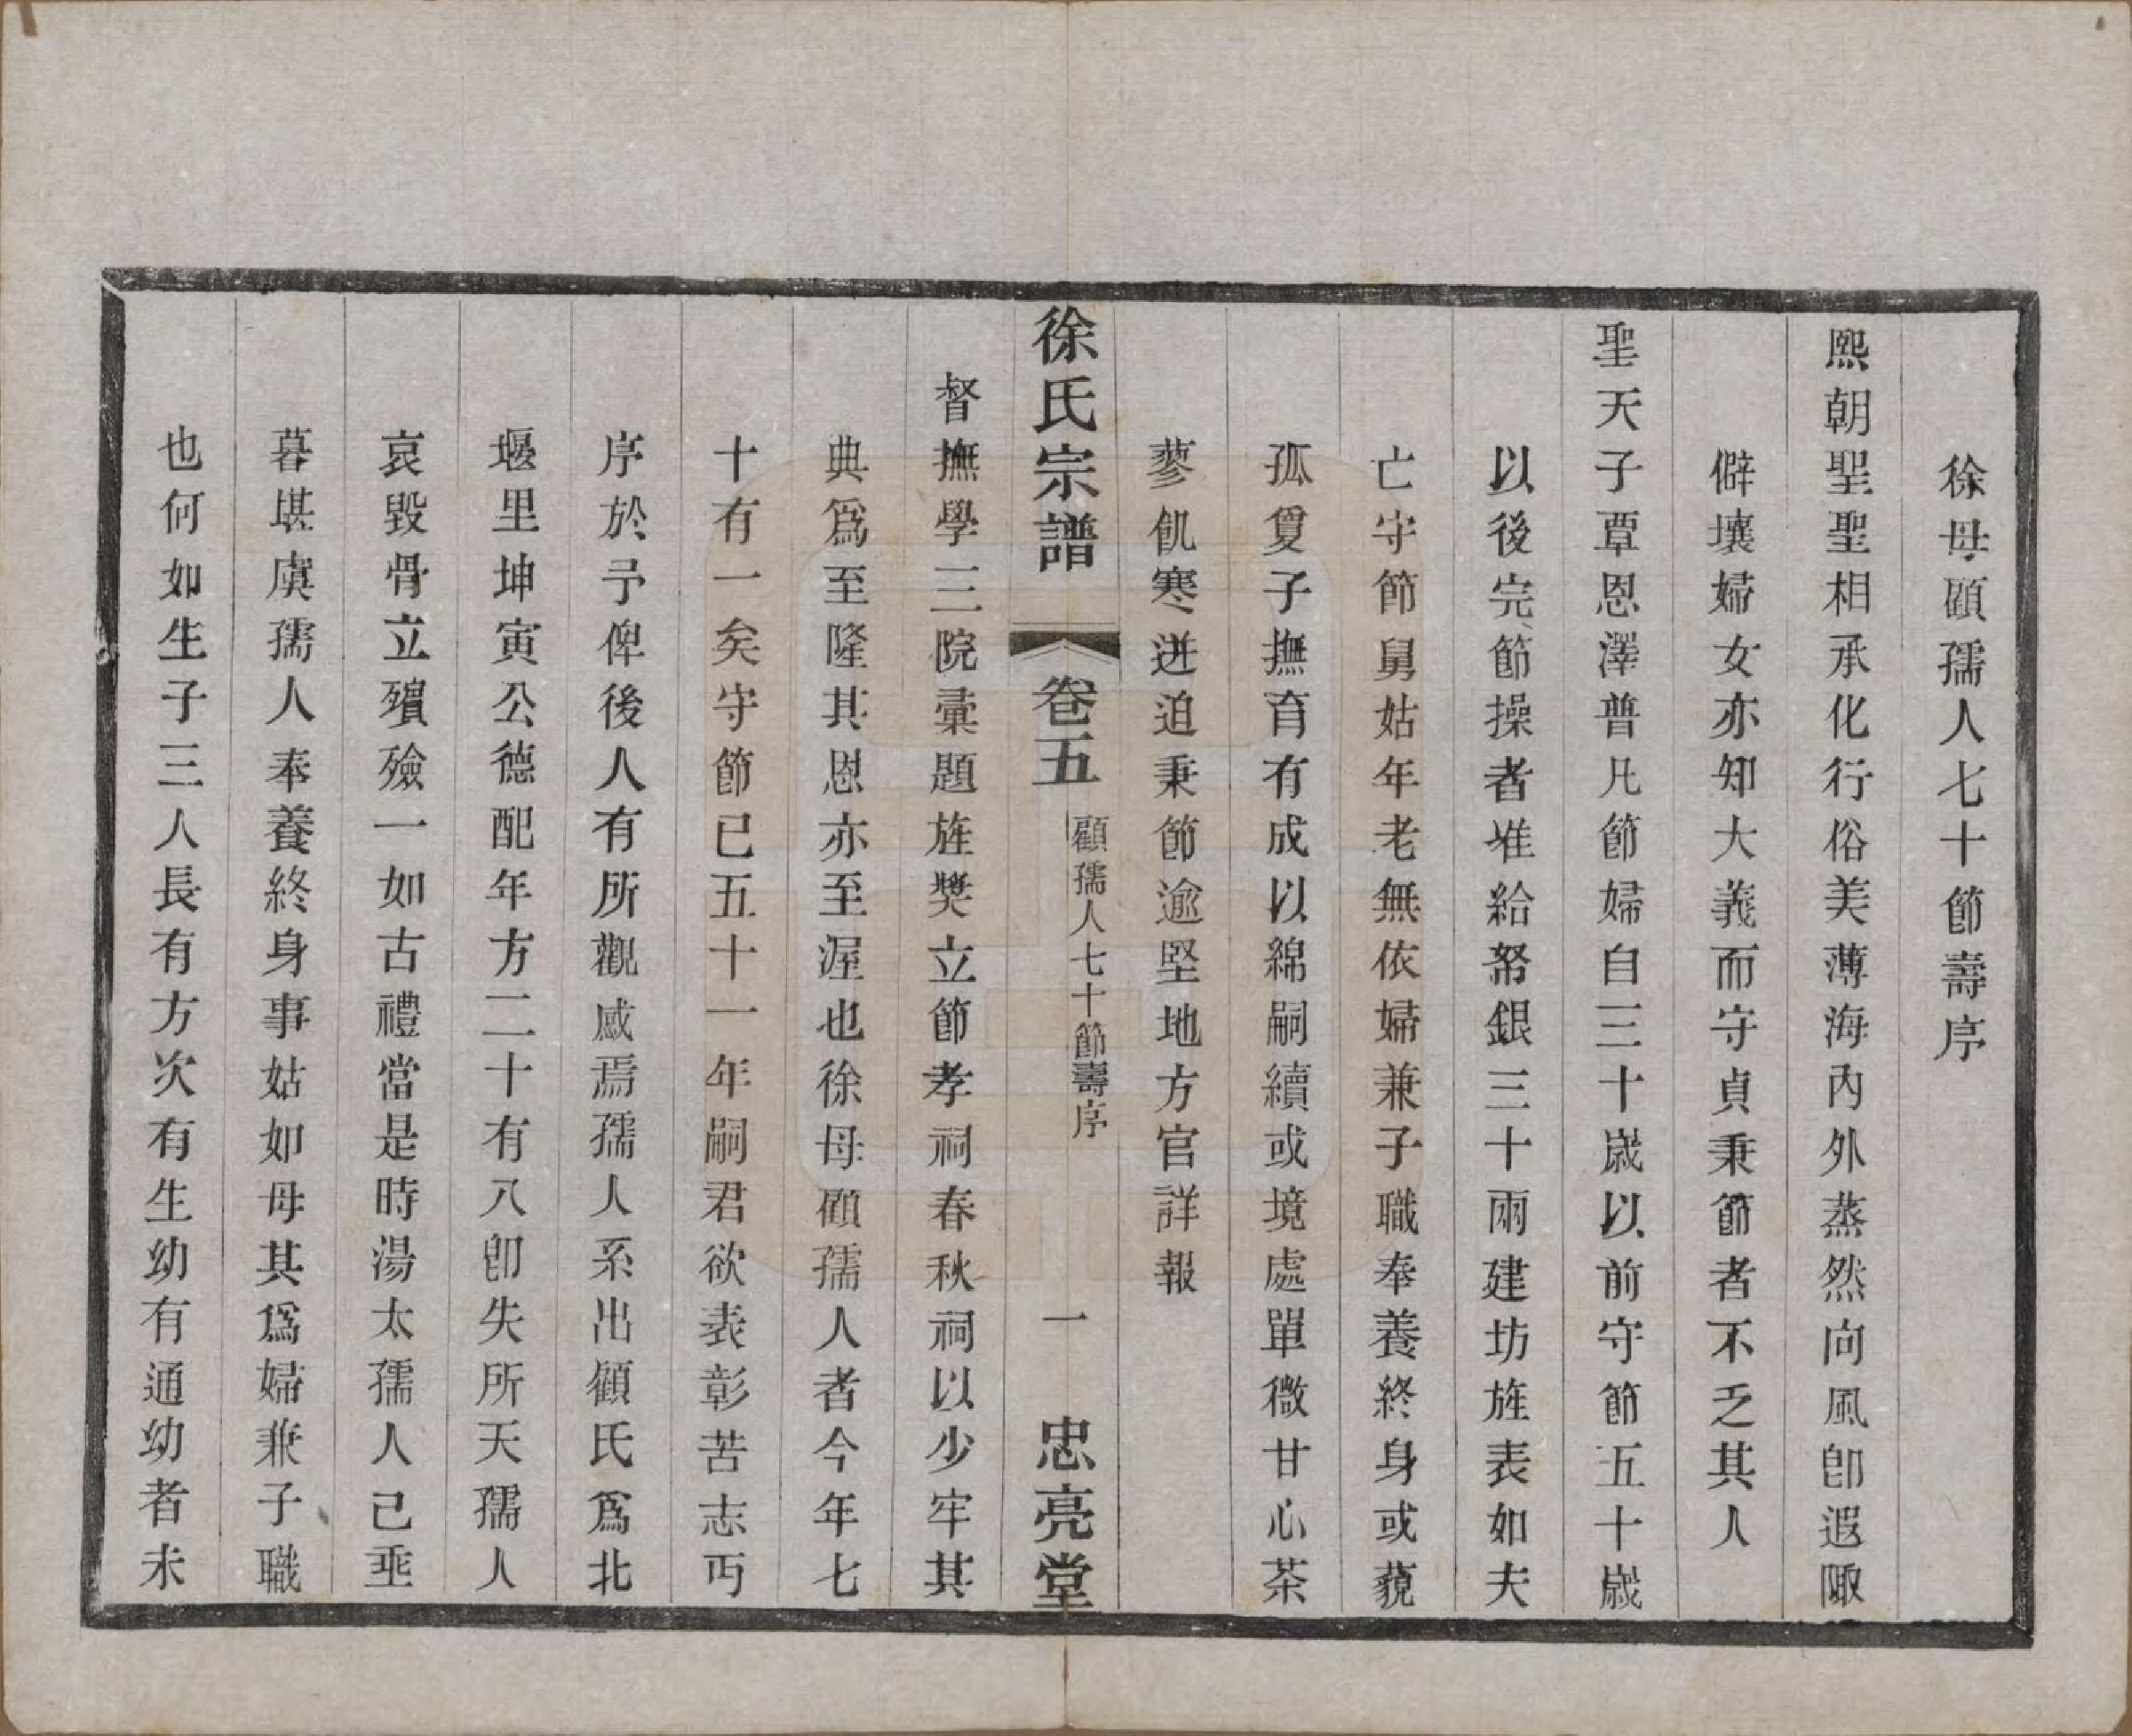 徐母顧孺人七十節壽序
熙朝聖聖相承化行俗美薄海內外蒸然向風卽遐陬
僻壤婦女亦知大義而守貞秉節者不乏其人
聖天子覃恩澤普凡節婦自三十歲以前守節五十歲
以後完節操者准給帑銀三十兩建坊旌表如夫
亡守節舅姑年老無依婦兼子職奉養終身或藐
孤敻子撫育有成以綿嗣續或境處單微甘心茶
蓼飢寒迸迫秉節逾堅地方官詳報
徐氏宗譜
卷五
顧孺人七十節壽序
一
忠亮堂
督撫學三院彙題旌獎立節孝祠春秋祠以少牢其
典爲至隆其恩亦至渥也徐母顧孺人者今年七
十有一矣守節已五十一年嗣君欲表彰苦志丏
序於予俾後人有所觀感焉孺人系出顧氏爲北
堰里坤寅公德配年方二十有八卽失所天孺人
哀毀骨立殯殮一如古禮當是時湯太孺人已垂
暮堪虞孺人奉養終身事姑如母其爲婦兼子職
也何如生子三人長有方次有生幼有通幼者未